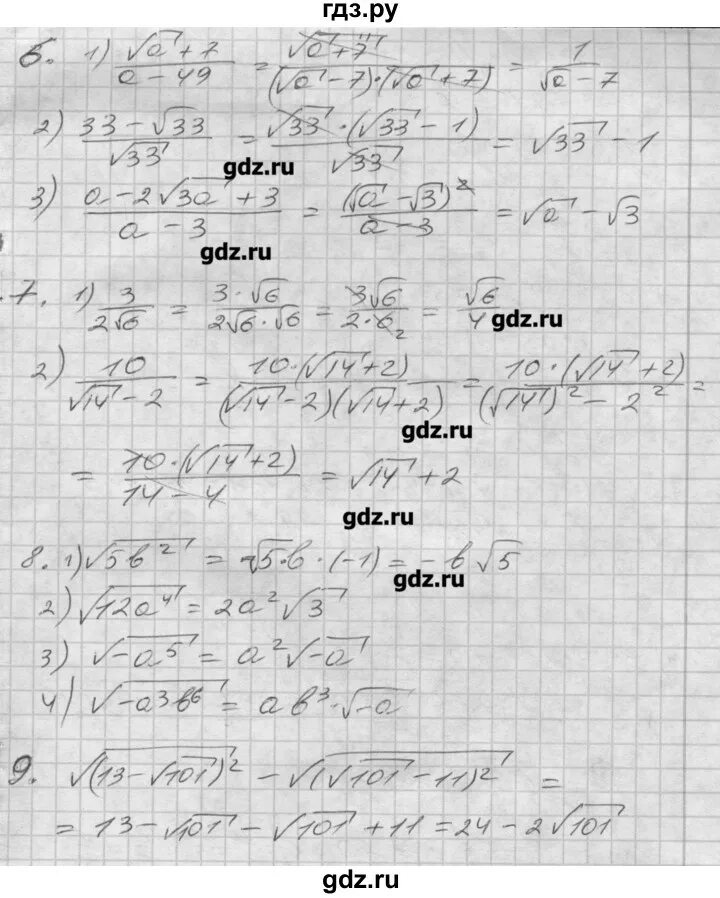 гдз.ру
6. 1) (√a + 7)/(a − 49) = (√a + 7)/((√a − 7)·(√a + 7)) = 1/(√a − 7)
2) (33 − √33)/√33 = (√33·(√33 − 1))/√33 = √33 − 1
gdz.ru
3) (a − 2√3a + 3)/(a − 3) = (√a − √3)²/(a − 3) = √a − √3
gdz.ru
7. 1) 3/(2√6) = (3·√6)/(2√6·√6) = (3√6)/(2·6₂) = √6/4
gdz.ru
2) 10/(√14 − 2) = (10·(√14 + 2))/((√14 − 2)(√14 + 2)) = (10·(√14 + 2))/((√14)² − 2²) =
gdz.ru
= (10·(√14 + 2))/(14 − 4) = √14 + 2
gdz.ru
8. 1) √5b² = √5·b·(−1) = −b√5
gdz.ru
2) √12a⁴ = 2a²√3
3) √−a⁵ = a²√−a
4) √−a³b⁶ = ab³·√−a
9. √(13 − √101)² − √(√101 − 11)² =
= 13 − √101 − √101 + 11 = 24 − 2√101
gdz.ru